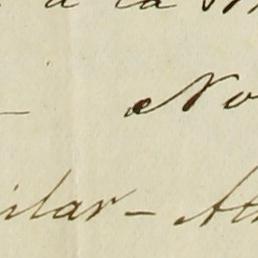 a la
No
ilar - At